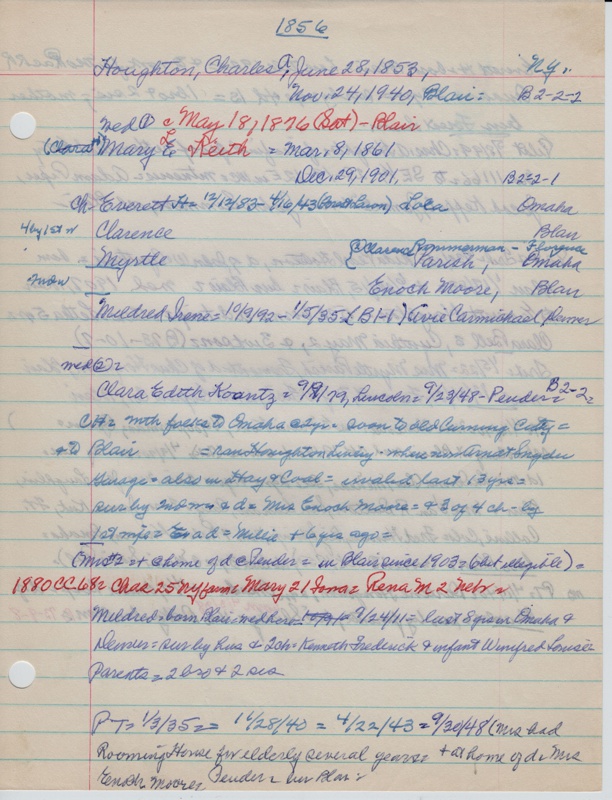 1856
Houghton, Charles A, June 28, 1853, N.Y.
Nov. 24, 1940, Blair = B2-2-2
med ① c May 18, 1876 (Sat) - Blair
(Clara) Mary E. Reith = Mar, 8, 1861
Dec. 29, 1901, B2=2-1
Ch - Everett H = 12/13/83 - 4/16/43 Lola Omaha
4 by 1st w Clarence Blair
Myrtle (Clarence Zimmerman - Florence
Parish, Omaha
2nd w Enoch Moore, Blair
Mildred Irene = 10/9/92 - 1/5/35 (B1-1) Carmichael
med ② =
Clara Edith Koontz = /79, Lincoln = 9/23/48 - Pender = B2-2=
CH = with folks to Omaha age = soon to old Cuming City =
& to Blair = ran Houghton Livery - where now Snyder
Garage = also in Hay & Coal = invalid last 13 yrs =
sur by 2nd w & d = Mrs Enoch Moore = & 3 of 4 ch - by
1st mge = d = + 6 yrs ago =
(Mrs #2 = + c home of d c Pender = in Blair since 1903 = obit illegible) =
1880 CC 68 = Chas 25 NY farm = Mary 21 Iowa = Rena M 2 Nebr =
Mildred = born Blair = med here 9/24/11 = last 8 yrs in Omaha &
Denver = sur by hus & 2 ch = Kenneth Frederick & infant Winifred Louise =
Parents = 2 bro & 2 sis
P-T = 1/3/35 = = 11/28/40 = 4/22/43 = 9/30/48 (Mrs had
Rooming House for elderly several years = + at home of d = Mrs
Enoch Moore, Pender = bur Blair =